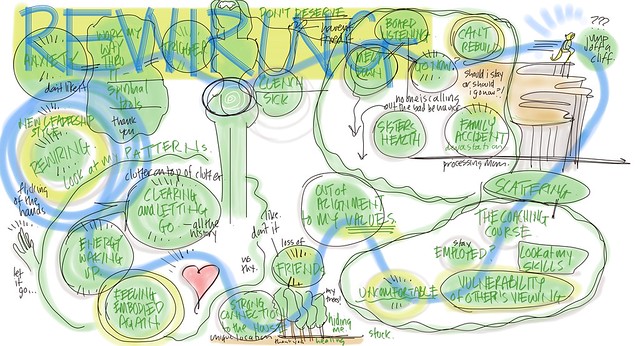 REWIRING
DON'T RESERVE
haven't
tried it
ANXIETY
don't like it
WORK MY
WAY
THRU
spiritual
tools
thank
you
TRIGGER
CLEAN
SICK
BOARD
LISTENING
CAN'T
REBUILD
MELT
DOWN
GO NOW.
should i stay
or should
i go now?!
no one is calling
out the bad behavior
SISTERS
HEALTH
FAMILY
ACCIDENT
devastation
processing mom.
???
jump
off a
cliff
NEW LEADERSHIP
STYLE.
REWIRING.
Look at m
PATTERNS.
clutter on top of clutter
CLEARING
and LETTING
GO
all the
history
flicking
of the
hands
let
it
go...
ENERGY
WAKING
UP.
FEELING
EMBODIED
AGAIN
OUT OF
ALIGNMENT
TO MY VALUES.
live.
don't it
loss of
FRIENDS
STRONG
CONNECTION
to the HOUSE
unique location
my
trees!
hiding
me.
healing
stuck.
SCATTERING
THE COACHING
COURSE
stay
EMPLOYED?
LOOK at my
SKILLS
UNCOMFORTABLE
VULNERABILITY
of OTHER'S VIEWING